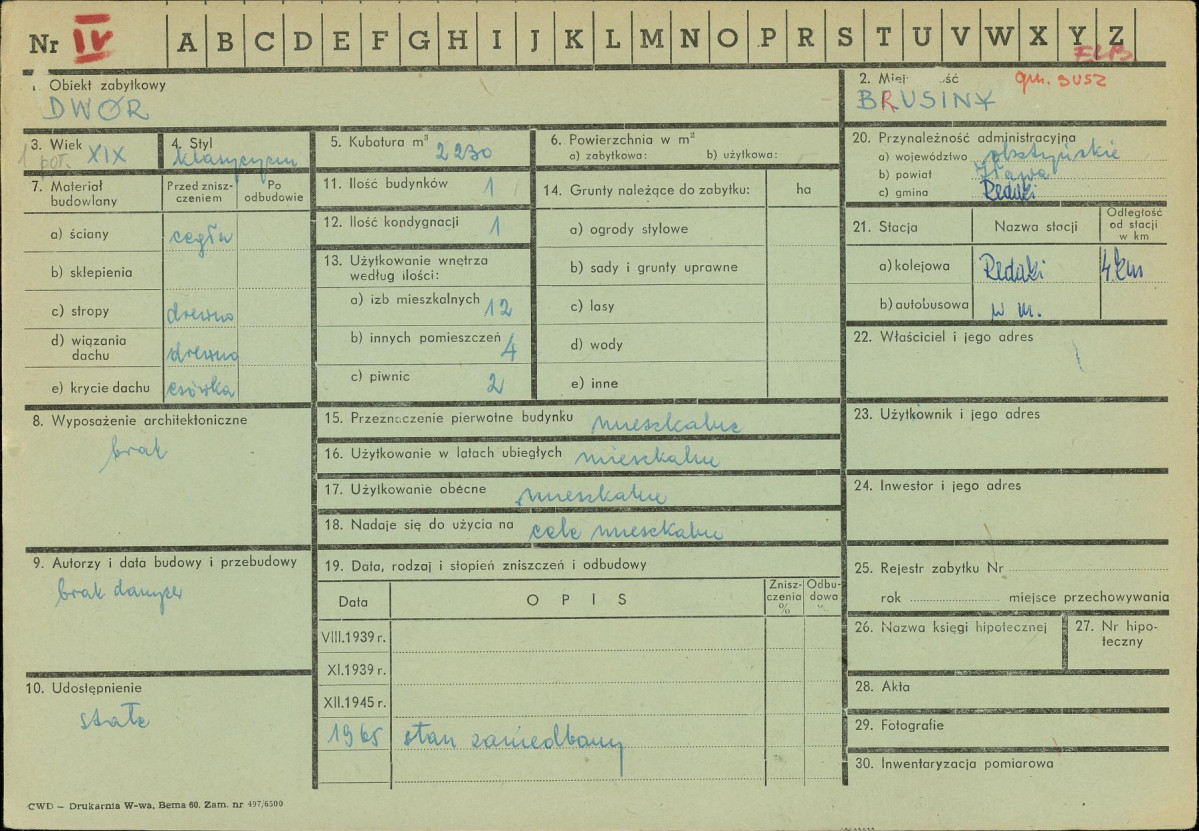 Nr IV A B C D E F G H I J K L M N O P R S T U V W X Y Z
ELB.
1. Obiekt zabytkowy
DWÓR
2. Miejscowość gm. SUSZ
BRUSINY
3. Wiek XIX
1 poł.
4. Styl
klasycyzm
5. Kubatura m³ 2230
6. Powierzchnia w m²
a) zabytkowa: b) użytkowa:
7. Materiał budowlany
Przed zniszczeniem
Po odbudowie
a) ściany cegła
b) sklepienia
c) stropy drewno
d) wiązania dachu drewno
e) krycie dachu esówka
8. Wyposażenie architektoniczne
brak
9. Autorzy i data budowy i przebudowy
brak danych
10. Udostępnienie
stałe
11. Ilość budynków 1
12. Ilość kondygnacji 1
13. Użytkowanie wnętrza
według ilości:
a) izb mieszkalnych 12
b) innych pomieszczeń 4
c) piwnic 2
14. Grunty należące do zabytku: ha
a) ogrody stylowe
b) sady i grunty uprawne
c) lasy
d) wody
e) inne
15. Przeznaczenie pierwotne budynku mieszkalne
16. Użytkowanie w latach ubiegłych mieszkalne
17. Użytkowanie obecne mieszkalne
18. Nadaje się do użycia na cele mieszkalne
19. Data, rodzaj i stopień zniszczeń i odbudowy
Data OPIS Zniszczenia % Odbudowa %
VIII.1939 r.
XI.1939 r.
XII.1945 r.
1965 stan zaniedbany
20. Przynależność administracyjna
a) województwo olsztyńskie
b) powiat Iława
c) gmina Redaki
21. Stacja Nazwa stacji Odległość od stacji w km
a) kolejowa Redaki 4 km
b) autobusowa w m.
22. Właściciel i jego adres
23. Użytkownik i jego adres
24. Inwestor i jego adres
25. Rejestr zabytku Nr
rok miejsce przechowywania
26. Nazwa księgi hipotecznej
27. Nr hipoteczny
28. Akta
29. Fotografie
30. Inwentaryzacja pomiarowa
CWD — Drukarnia W-wa, Bema 60. Zam. nr 497/6500